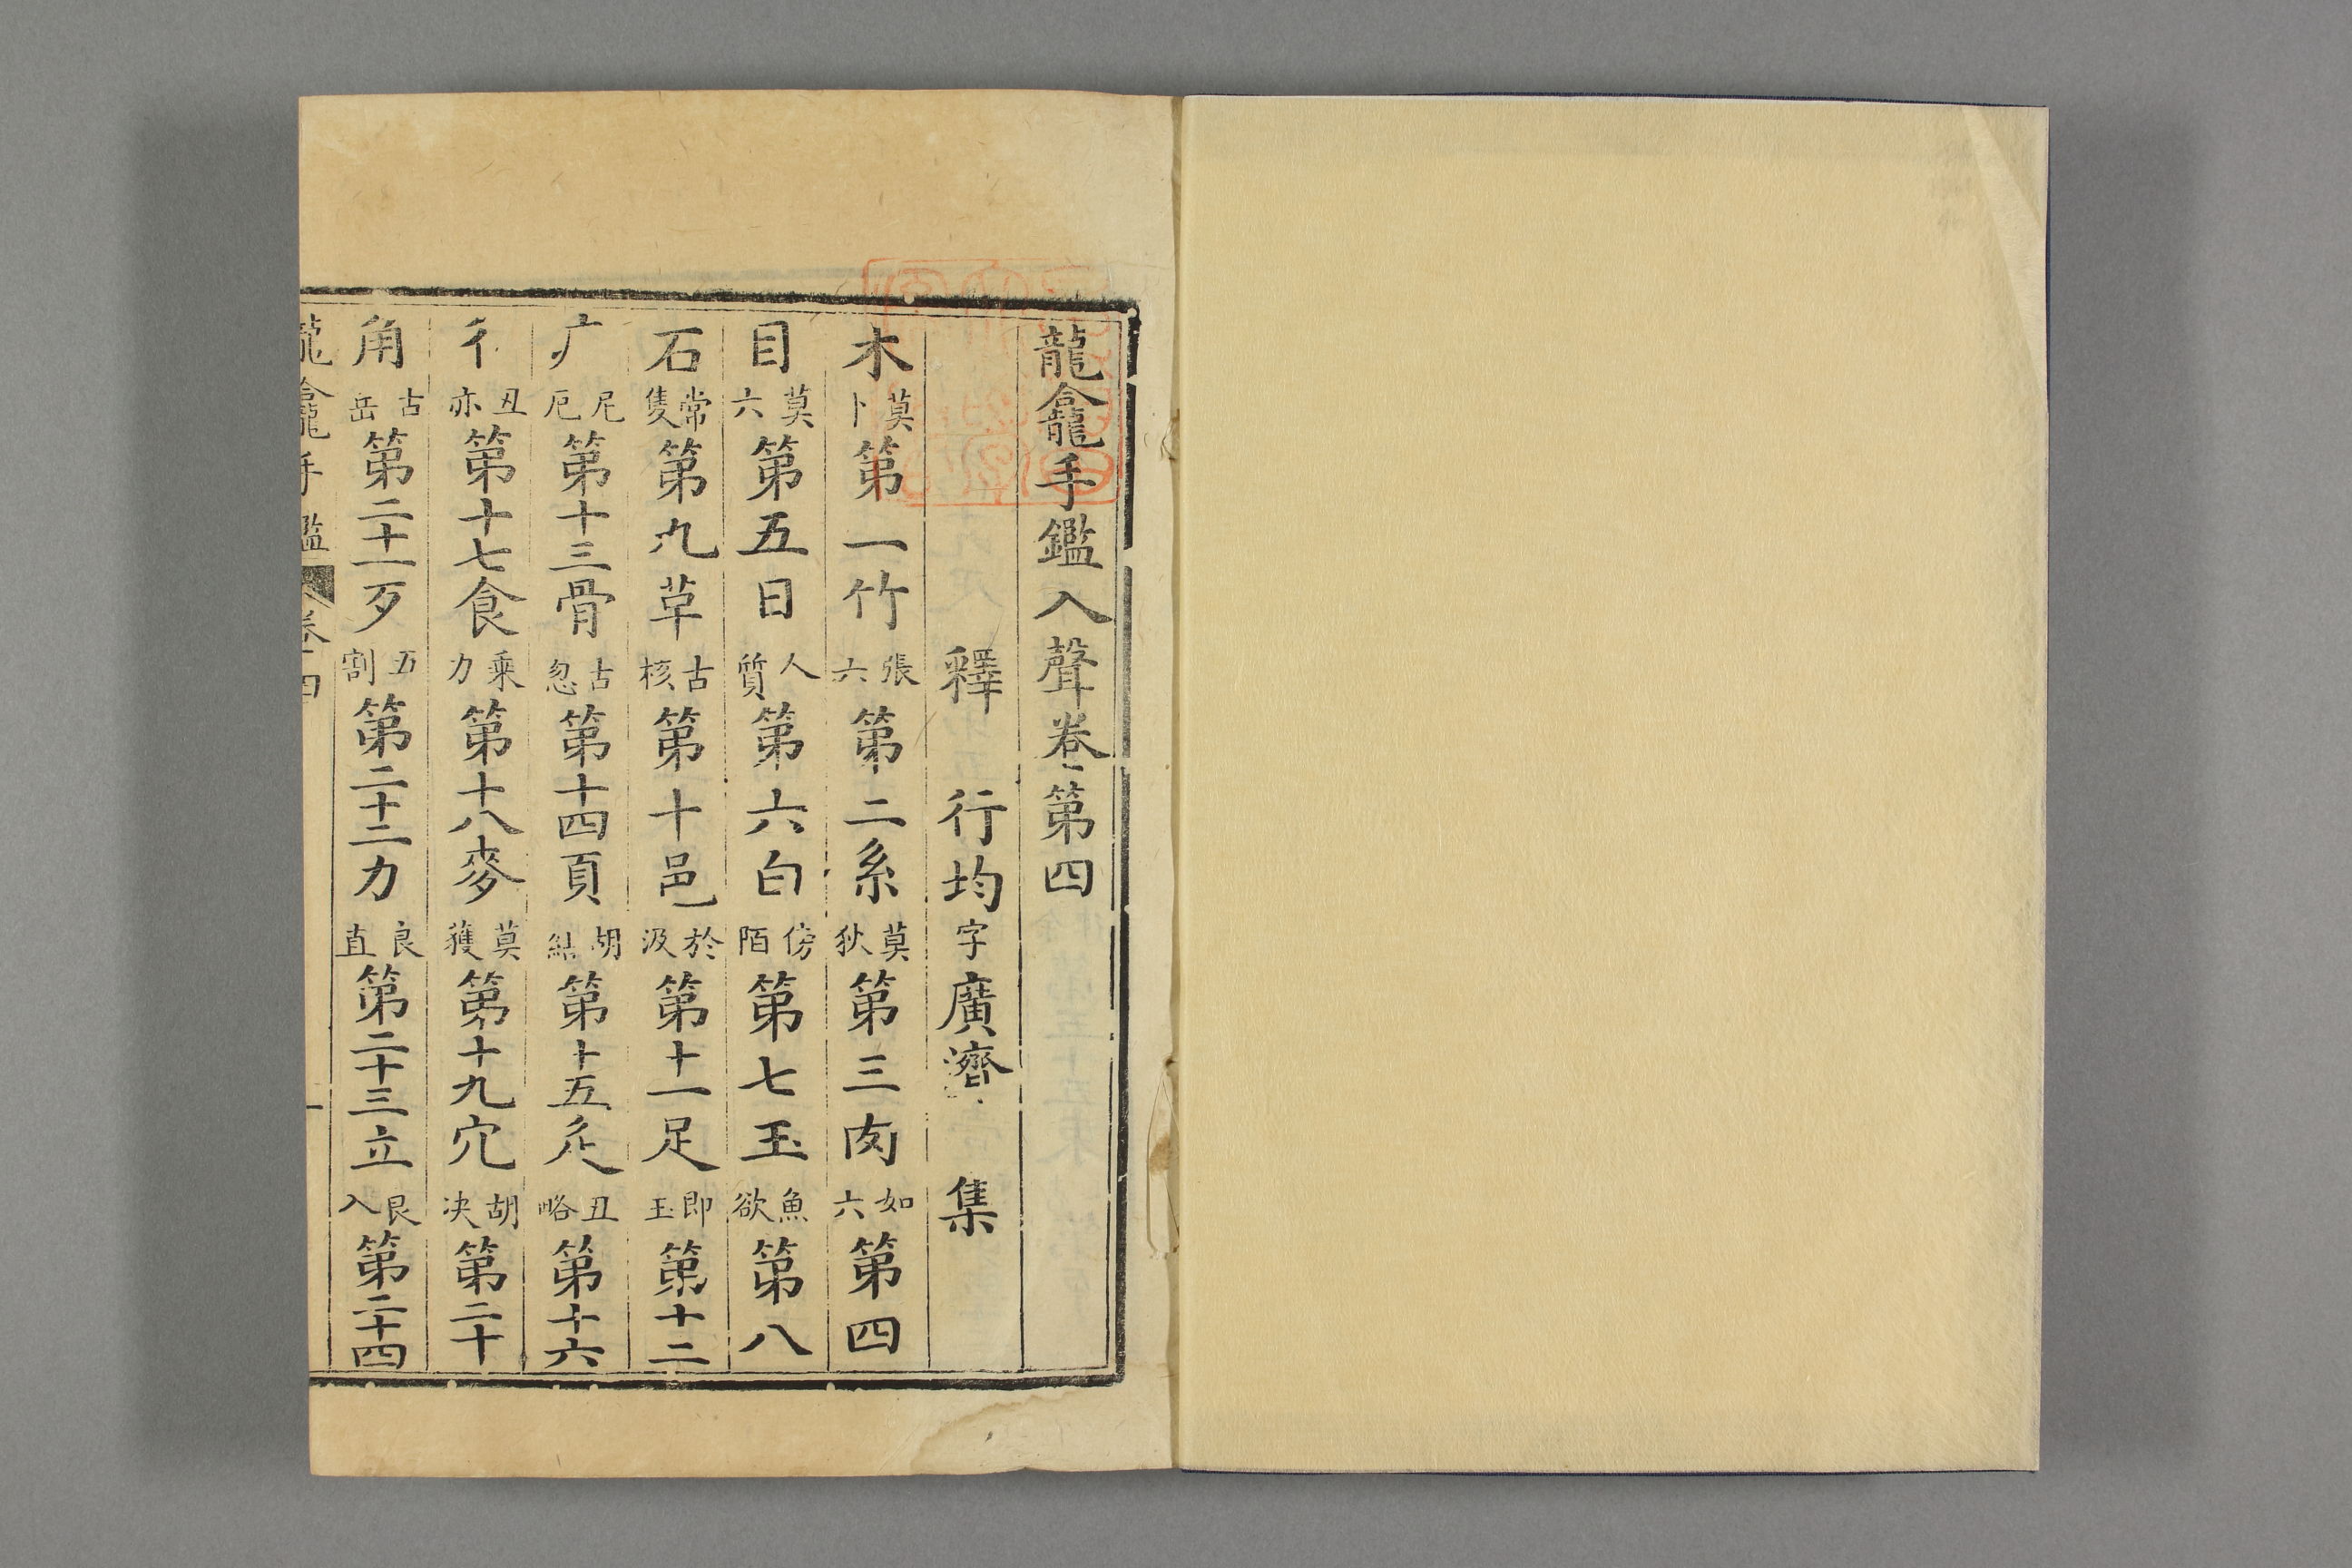 龍龕手鑑入聲卷第四
釋行均字廣濟集
木莫卜第一竹張六第二糸莫狄第三肉如六第四
目莫六第五日人質第六白傍陌第七玉魚欲第八
石常隻第九草古核第十邑於汲第十一足即玉第十二
疒尼厄第十三骨古忽第十四頁胡結第十五辵丑略第十六
彳丑亦第十七食乗力第十八麥莫獲第十九穴胡决第二十
角古岳第二十一歹五割第二十二力良直第二十三立良入第二十四
龍龕手鑑卷四 一